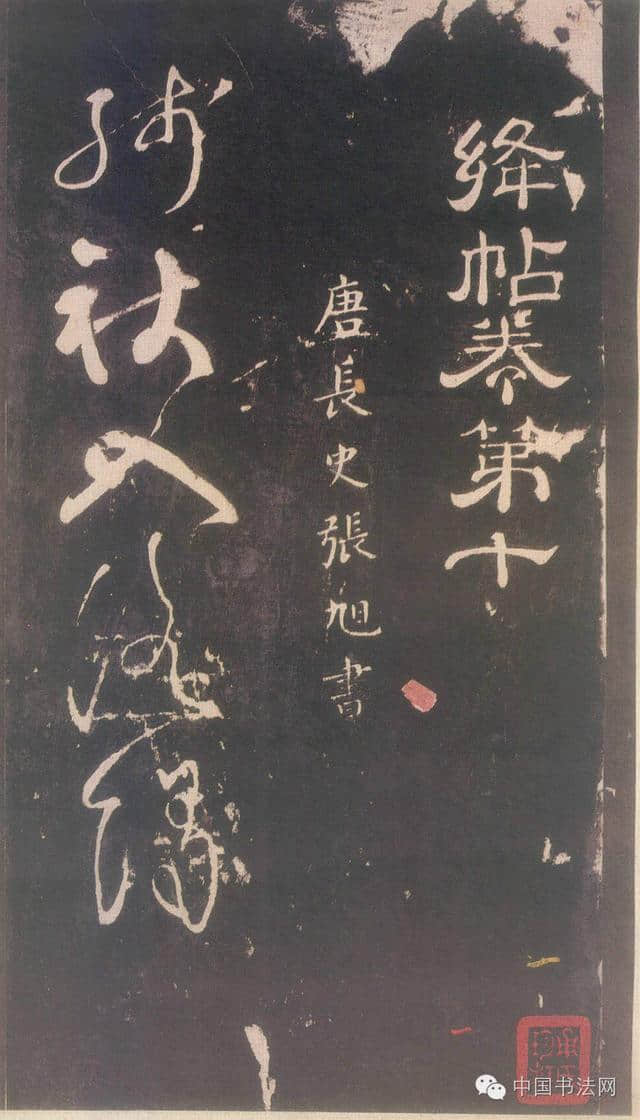 絳帖卷第十
唐長史張旭書
秋入
中国书法网